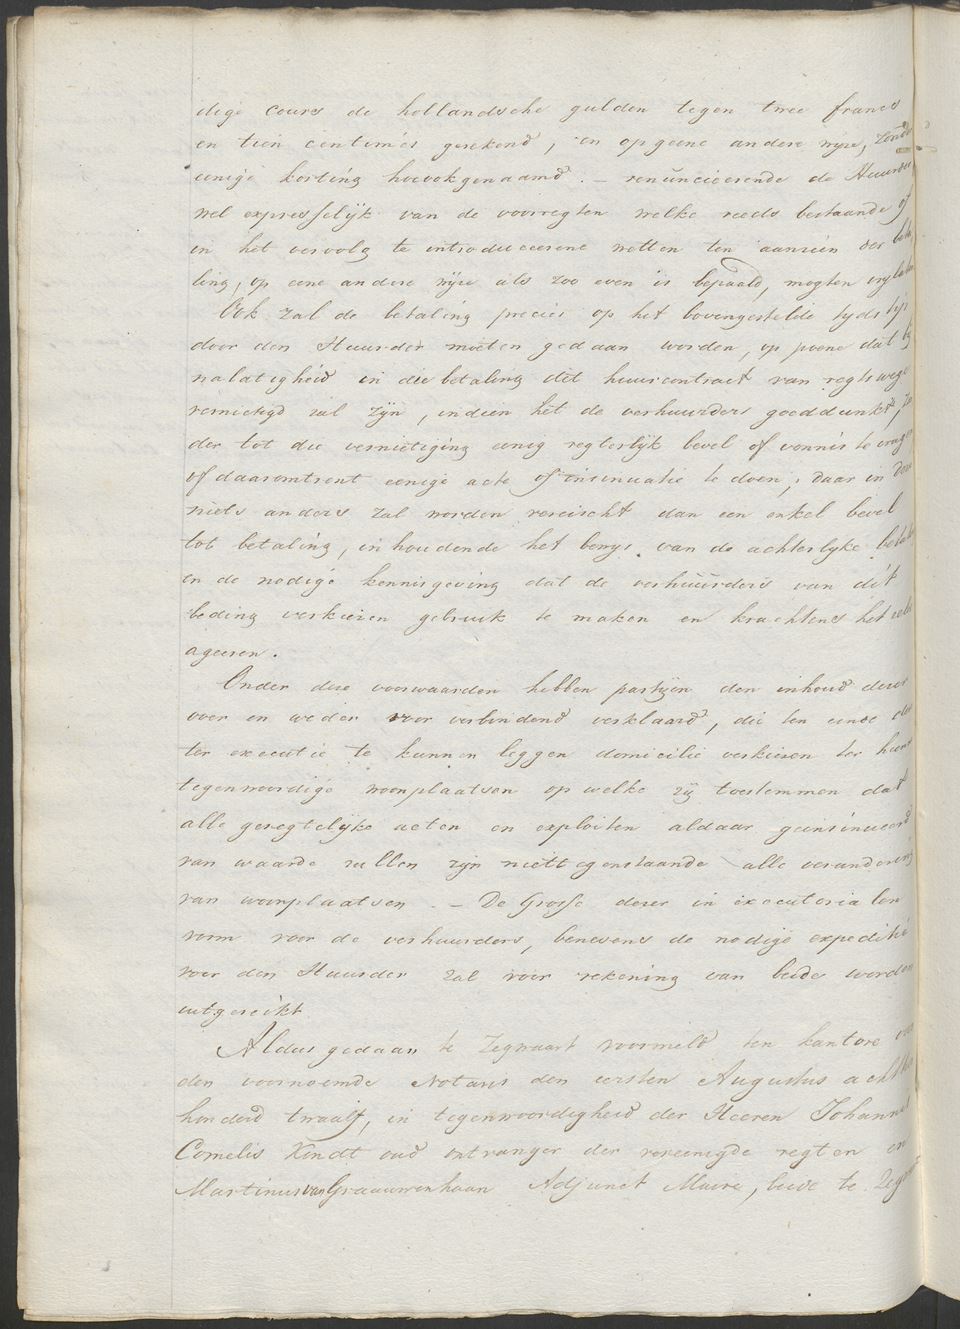 dige cours de hollandsche gulden tegen twee francs
en tien centimes gerekend, en op geene andere wyze, zonder
eenige korting hoe ook genaamd. – renuncieerende de Huurder
wel expresselijk van de voorregten welke reeds bestaande of
in het vervolg te introduceerene wetten ten aanzien der beta
ling, op eene andere wyze als zoo even is bepaald, mogten
Ook zal de betaling precies op het bovengestelde tydstip
door den Huurder moeten gedaan worden, op poene dat by
nalatigheid in die betaling dit huurcontract van regtswege
vernietigd zal zijn, indien het de verhuurders goeddunkt, zo
der tot die vernietiging eenig regterlyk bevel of vonnis te vragen
of daaromtrent eenige acte of insinuatie te doen, daar in
niets anders zal worden vereischt dan een enkel bevel
tot betaling, inhoudende het bewys van de achterlyke
en de nodige kennisgeving dat de verhuurders van dit
beding verkiezen gebruik te maken en krachtens het
ageeren.
Onder deze voorwaarden hebben partyen den inhoud dezer
over en weder voor verbindend verklaard, die ten einde
ter executie te kunnen leggen domicilie verkiezen ter
tegenwoordige woonplaatsen op welke zij toestemmen dat
alle geregtelijke acten en exploiten aldaar geinsinueerd
van waarde zullen zijn niettegenstaande alle verandering
van woonplaatsen. – De Grosse dezer in executorialen
vorm voor de verhuurders, benevens de nodige expeditie
voor den Huurder zal voor rekening van beide worden
uitgereikt
Aldus gedaan te Zegwaart voormeld ten kantore
den voornoemde Notaris den eersten Augustus acht
honderd twaalf, in tegenwoordigheid der Heeren Johannes
Cornelis Kindt oud ontvanger der vereenigde regten en
Martinus van Graauwenhaan Adjunct Maire, beide te